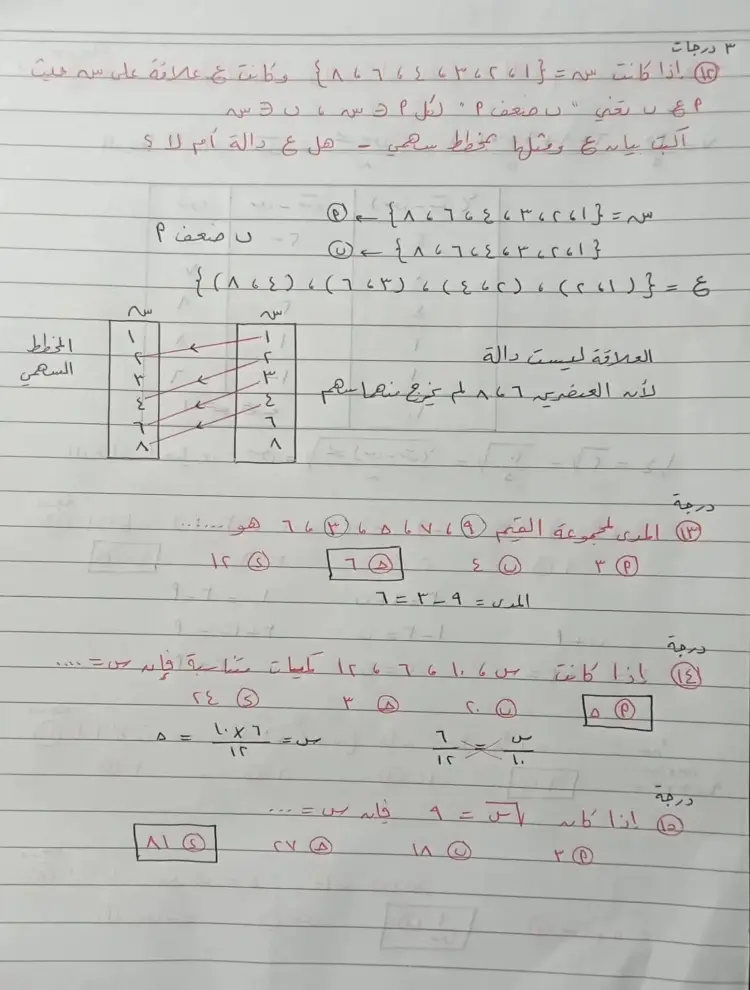 ٣ درجات
١٢ إذا كانت س = {١، ٢، ٣، ٤، ٦، ٨} وكانت ع علاقة على س حيث
م ع ں تعني " ں ضعف م " لكل م ∋ س ، ں ∋ س
اكتب بيان ع ومثلها بمخطط سهمي - هل ع دالة أم لا ؟
س = {١، ٢، ٣، ٤، ٦، ٨} ← م
{١، ٢، ٣، ٤، ٦، ٨} ← ں
ں ضعف م
ع = {(١، ٢) ، (٢، ٤) ، (٣، ٦) ، (٤، ٨)}
س س
١ ١
٢ ٢
٣ ٣
٤ ٤
٦ ٦
٨ ٨
المخطط
السهمي
العلاقة ليست دالة
لأن العنصرين ٦، ٨ لم يخرج منهما سهم
درجة
١٣ المدى لمجموعة القيم ٩، ٧، ٥، ٣، ٦ هو .....
م ٣ ں ٤ ح ٦ د ١٢
المدى = ٩ - ٣ = ٦
درجة
١٤ إذا كانت س، ١٠، ٦، ١٢ كميات متناسبة فإن س = ....
م ٥ ں ٢٠ ح ٣ د ٢٤
س/١٠ = ٦/١٢ س = ١٠ × ٦/١٢ = ٥
درجة
١٥ إذا كان √س = ٩ فإن س = ....
م ٣ ں ١٨ ح ٢٧ د ٨١